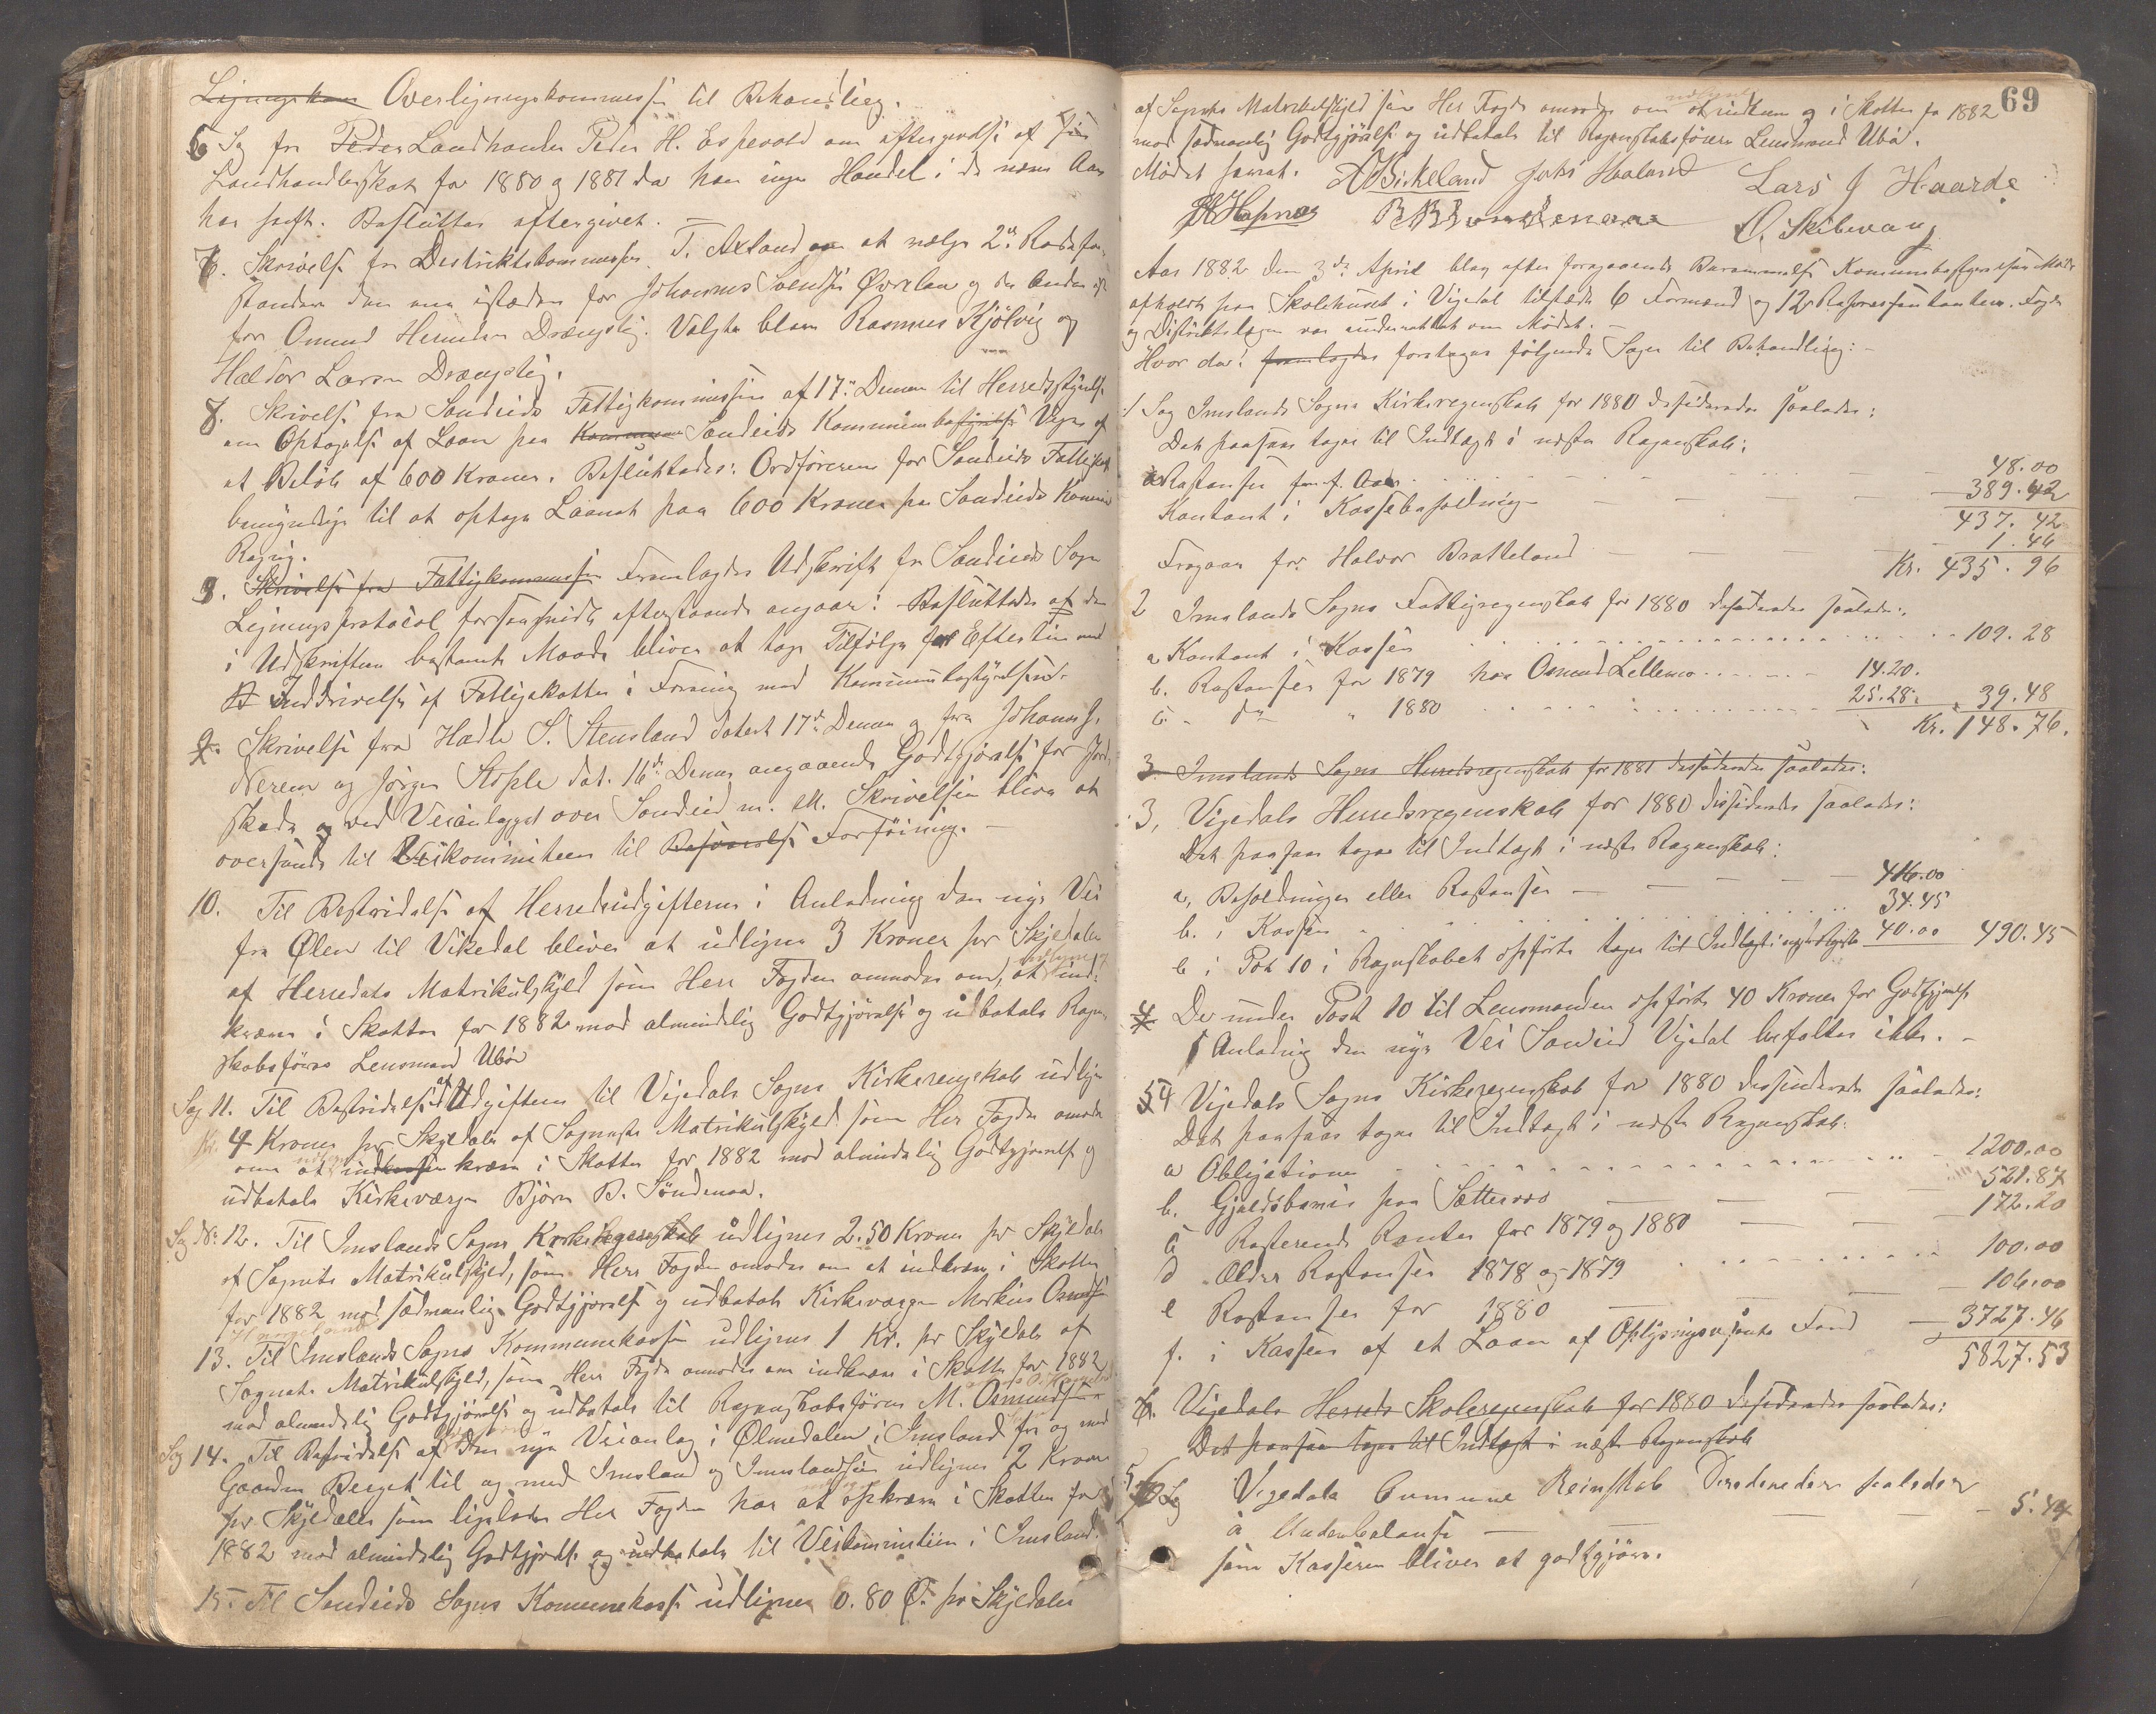 Ligningskom Overligningskommissi til Behandling.
6 Sag fra Peder Landhandler Peder H. Espevold om eftergivelse af sin
Landhandlerskat for 1880 og 1881 da han ingen Handel i de nævn Aar
har havt. Besluttes eftergivet. —
7. Skrivelse fra Destriktskommissær T. Axland om at vælge 2de Rodefor-
standere den ene istæden for Johannes Svendsen Øvrebø og den Anden
for Omund Drængstig. Valgte blev Rasmus Kjölvig og
Haldor Larsen Drængstig.
8. Skrivelse fra Sandeids Fattigkommission af 17de Dennes til Herredsstyrelse
om Optagelse af Laan paa Kommunen Sandeids Kommunebestyrelses Vegne af
et Beløb af 600 Kroner. Besluttedes: Ordføreren for Sandeids Fattigkas
bemyndiges til at optage Laanet paa 600 Kroner paa Sandeids Kommunes
Regning.
9. Skrivelse fra Fattigkommissi Fremlagdes Udskrift fra Sandeids Sogns
Ligningsprotocol forsaavidt efterstaaende angaar: Besluttedes at den
i Udskriften bestemte Maade bliver at tage Tilfølge for Eftertiden med
Inddrivelse af Fattigskatten i Forening med Kommunebestyrelsen.
9. Skrivelse fra Hadle S. Stensland datert 17de Dennes og fra Johannes J.
Nerem og Jörgen Stople dat. 16de Dennes angaaende Godtgjørelse for Jord-
skade ved Veianlægget over Sandeid m. m. Skrivelsen bliver at
oversende til Veikommiteen til Besvarelse Forføining. —
10. Til Bestridelse af Herredsudgifterne i Anledning den nye Vei
fra Ølen til Vikedal bliver at udligne 3 Kroner pr Skjldaler
af Herredets Matrikulskyld som Herr Fogden anmodes om, at ind-
kræve i Skatten for 1882 mod almindelig Godtgjørelse og udbetale Regn-
skabsfører Lensmand Ubø
Sag 11. Til Bestridelse af Udgifterne til Vigedals Sogns Kirkeregnskab udlignes
4 Kroner pr Skyldaler af Sognets Matrikulskyld som Her Fogden anmodes
om at indkassere kræve i Skatten for 1882 mod almindelig Godtgjørelse og
udbetale Kirkeværge Bjørn B. Söndenaa.
Sag No 12. Til Imslands Sogns Kirkeregnskab udlignes 2.50 Kroner pr Skyldaler
af Sognets Matrikulskyld, som Herr Fogden anmodes om at indkræve i Skatten
for 1882 mod sædvanlig Godtgjørelse og udbetale Kirkeværgen Markus Osmundsen
13. Til Imslands Sogns Kommunekasse udlignes 1 Kr. pr Skyldaler af
Sognets Matrikulskyld, som Herr Fogden anmodes om indkræve i Skatten for 1882
mod almindelig Godtgjørelse og udbetale til Regnskabsfører M. Osmundsen
Sag 14. Til Bestridelse af den nye Veianlæg i Ølmedalen i Imsland fra og med
Gaarden Berget til og med Imsland og Imslandsjøen udlignes 2 Kroner
pr Skyldaler som ligeledes Her Fogden har at opkræve i Skatten for
1882 mod almindelig Godtgjørelse og udbetale til Veikommiteen i Imsland.
15. Til Sandeids Sogns Kommunekasse udlignes 0.80 Ø. pr Skyldaler
69
af Sognets Matrikulskyld som Her Fogden anmodes om at indkræve i Skatten for 1882
mod sædvanlig Godtgjørelse og udbetale til Regnskabsfører Lensmand Ubø.
Mödet hævet. A Birkeland Johs Hoaland Lars J Haarde
O. Skibevaag
Aar 1882 den 3de April blev efter foregaaende Berammelse Kommunebestyrelses Møde
afholdt paa Skolehuset i Vigedal tilstede 6 Formænd og 12 Repræsentanter. Fogden
og Distriktslægen var underrettet om Mødet. —
Hvor da: fremlagdes foretages følgende Sager til Behandling: —
1 Sag Imslands Sogns Kirkeregnskab for 1880 desideredes saaledes:
Det paasees tages til Indtægt i næste Regnskab:
a Restanser fra f. Aar 48.00
Kontant i Kassebeholdning 389.42
437.42
Fragaar for Haldor Bratteland 1.46
Kr. 435.96
2 Imslands Sogns Fattigregnskab for 1880 desideredes saaledes:
a Kontant i Kassen 109.28
b. Restanser for 1879 hos Osmund Lellemo 14.20.
c. do " 1880 25.28. 39.48
Kr. 148.76.
3. Imslands Sogns Herredsregnskab for 1881 desideredes saaledes:
3, Vigedals Herredsregnskab for 1880 desideredes saaledes:
Det paasees tages til Indtægt i næste Regnskab:
a, Beholdninger eller Restanser 416.00
b. i Kassen 34.45
c i Post 10 i Regnskabet opførte tages til Indtægt i 40.00 490.45
4 De under Post 10 til Lensmanden opførte 40 Kroner for Godtgjørelse
i Anledning den nye Vei Vigedal befattes ikke. —
4 Vigedals Sogns Kirkeregnskab for 1880 desideredes saaledes:
Det paasees tages til Indtægt i næste Regnskab.
a Obligationer 1200.00
b. Gjældsbevis paa Sættevoss 521.87
c Resterende Renter for 1879 og 1880 172.20
d Ældre Restanser 1878 og 1879 100.00
e Restanser for 1880 106.00
f. i Kassen af et Laan af Oplysningsvæsenets Fond 3727.46
5827.53
6. Vigedals Herreds Skoleregnskab for 1880 desideredes saaledes:
Det paasees tages til Indtægt i næste Regnskab
5 Sag Vigedals Comune Reinskab saaledes
a Underbalanse 5.44
som Kassereren bliver at godtgjøre.